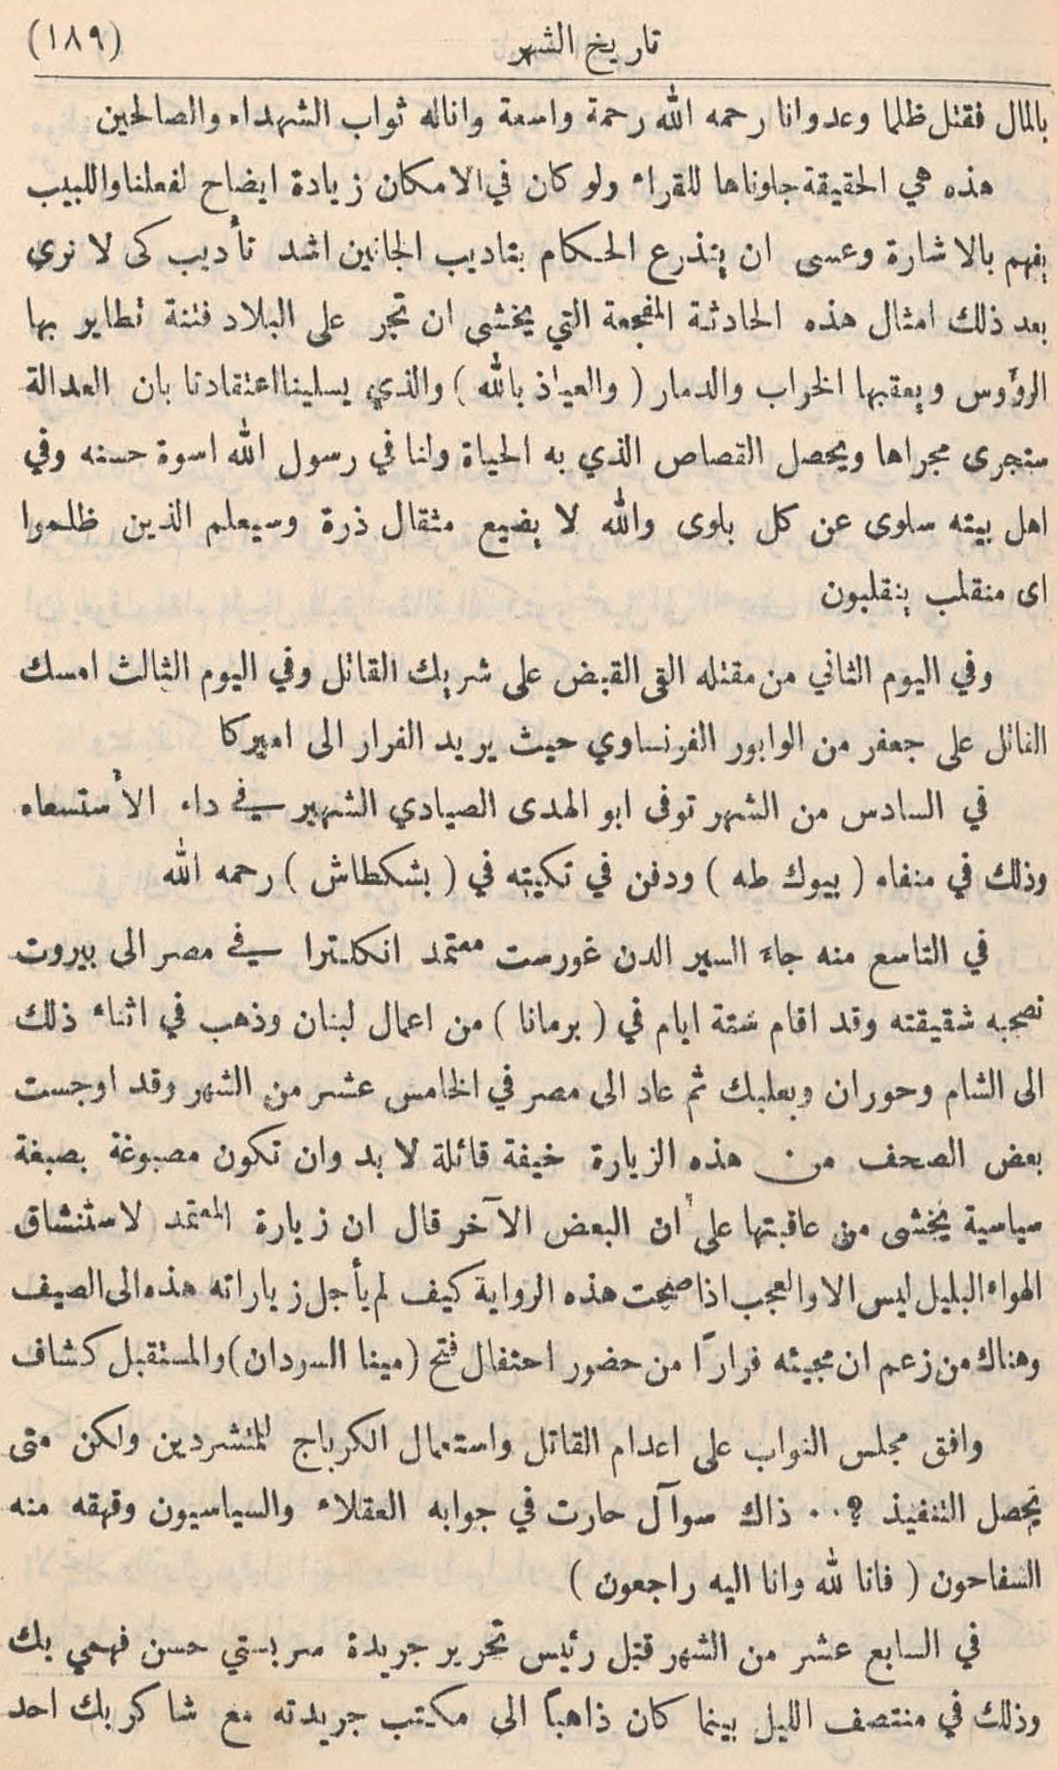 تاريخ الشهر (١٨٩)
بالمال فقتل ظلما وعدوانا رحمه الله رحمة واسعة واناله ثواب الشهداء والصالحين
هذه هي الحقيقة جلوناها للقراء ولو كان في الامكان زيادة ايضاح لفعلنا واللبيب
يفهم بالاشارة وعسى ان يتذرع الحكام بتاديب الجانين اشد تأديب كى لا نرى
بعد ذلك امثال هذه الحادثة المفجعة التي يخشى ان تجر على البلاد فتنة تطاير بها
الرؤوس ويعقبها الخراب والدمار ( والعياذ بالله ) والذي يسلينا اعتقادنا بان العدالة
ستجرى مجراها ويحصل القصاص الذي به الحياة ولنا في رسول الله اسوة حسنه وفي
اهل بيته سلوى عن كل بلوى والله لا يضيع مثقال ذرة وسيعلم الذين ظلموا
اى منقلب ينقلبون
وفي اليوم الثاني من مقتله القى القبض على شريك القاتل وفي اليوم الثالث امسك
القاتل على جعفر من الوابور الفرنساوي حيث يريد الفرار الى اميركا
في السادس من الشهر توفى ابو الهدى الصيادي الشهير في داء الأستسعاء
وذلك في منفاه ( بيوك طه ) ودفن في تكيته في ( بشكطاش ) رحمه الله
في التاسع منه جاء السير الدن غورست معتمد انكلترا في مصر الى بيروت
تصحبه شقيقته وقد اقام ستة ايام في ( برمانا ) من اعمال لبنان وذهب في اثناء ذلك
الى الشام وحوران وبعلبك ثم عاد الى مصر في الخامس عشر من الشهر وقد اوجست
بعض الصحف من هذه الزيارة خيفة قائلة لا بد وان تكون مصبوغة بصبغة
سياسية يخشى من عاقبتها على ان البعض الآخر قال ان زيارة المعتمد لاستنشاق
الهواء البليل ليس الا والعجب اذا صحت هذه الرواية كيف لم يأجل زياراته هذه الى الصيف
وهناك من زعم ان مجيئه فرارًا من حضور احتفال فتح (مينا السودان) والمستقبل كشاف
وافق مجلس النواب على اعدام القاتل واستعمال الكرباج للمتشردين ولكن متى
يحصل التنفيذ ؟.. ذاك سوآل حارت في جوابه العقلاء والسياسيون وقهقه منه
السفاحون ( فانا لله وانا اليه راجعون )
في السابع عشر من الشهر قتل رئيس تحرير جريدة سربستي حسن فهمي بك
وذلك في منتصف الليل بينما كان ذاهبًا الى مكتب جريدته مع شاكر بك احد